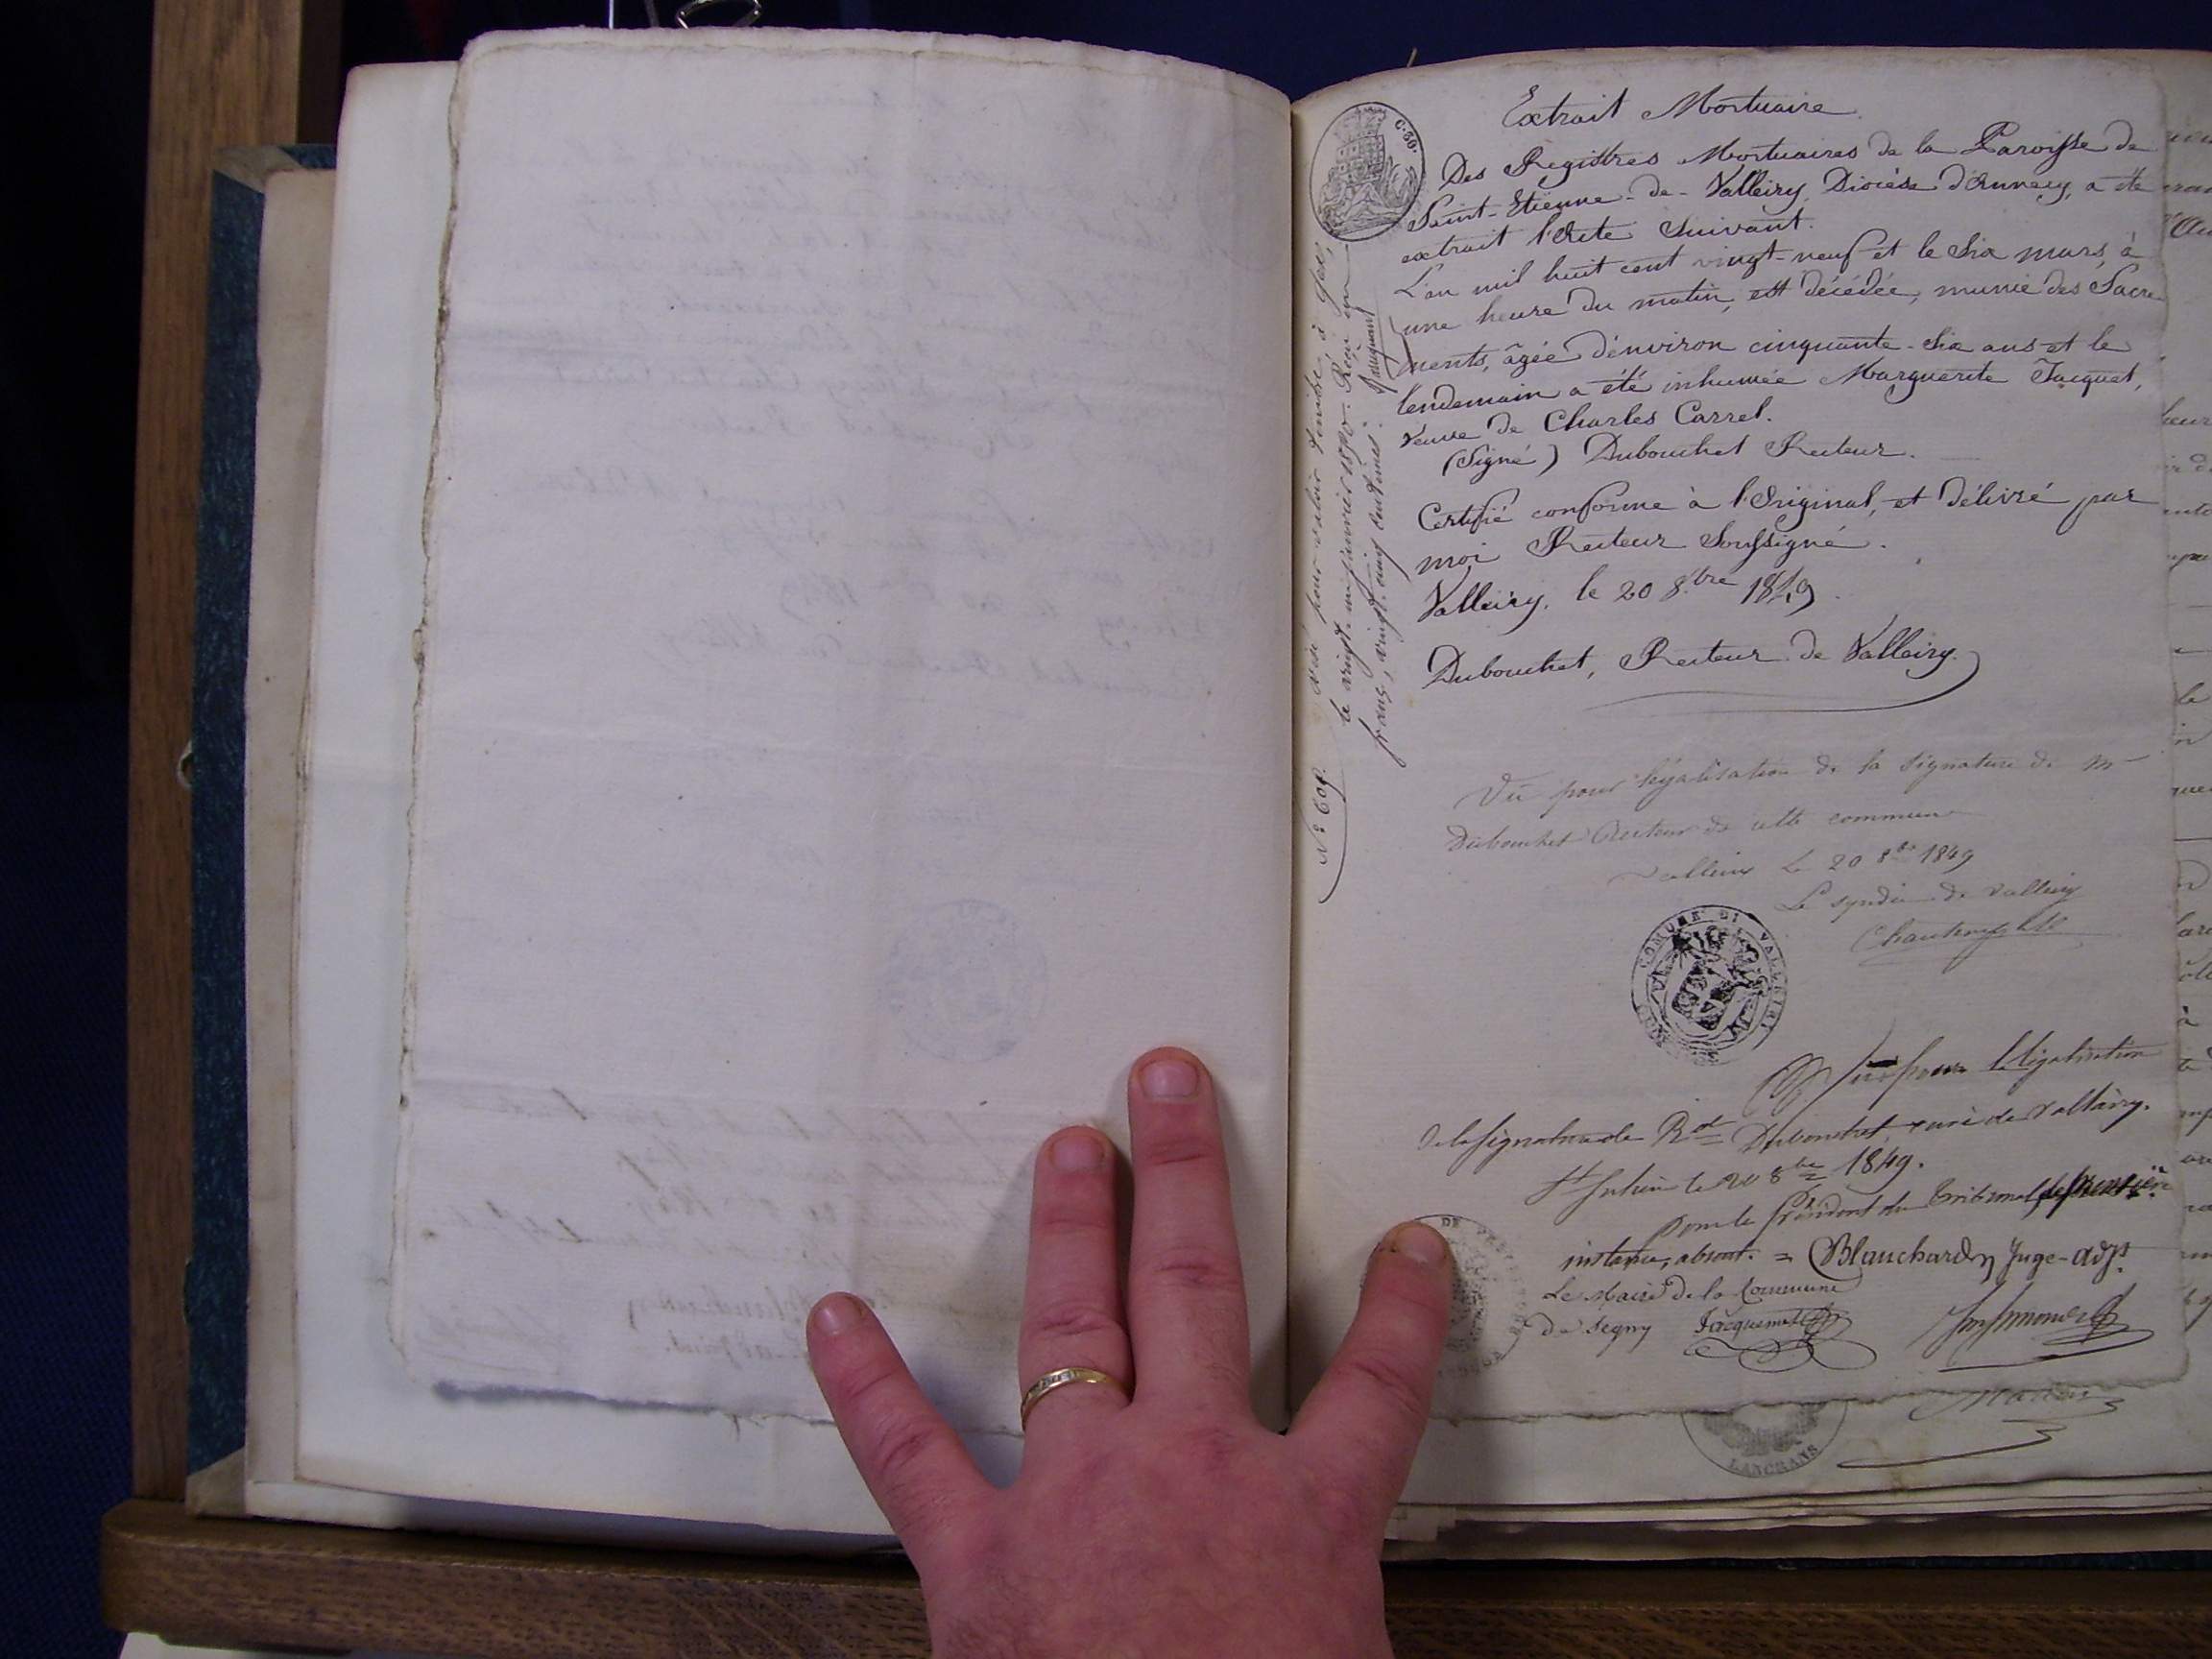 Extrait Mortuaire.
C. 80.
Des Registres Mortuaires de la Paroisse de
Saint-Etienne-de-Valleiry, Diocèse d'Annecy, a été
extrait l'Acte Suivant.
L'an mil huit cent vingt-neuf et le Six mars, à
une heure du matin, est décédée, munie des Sacre-
ments, âgée d'environ cinquante-Six ans et le
lendemain a été inhumée Marguerite Jacquet,
Veuve de Charles Carrel.
(Signé) Dubouchet Recteur.
Certifié conforme à l'Original, et délivré par
moi Recteur Soussigné.
Valleiry, le 20 8.bre 1849.
Dubouchet, Recteur de Valleiry.
N° 609. visé pour valoir timbre à Gex,
le vingt-un janvier 1850. Reçu un
franc, vingt-cinq centimes.
Vu pour légalisation de la signature de m
Dubouchet Recteur de cette commune
Valleiry le 20 8bre 1849
Le syndic de Valleiry
COMUNE DI VALLEIRY
Vu pour légalisation
de la signature de Rd Dubouchet, curé de Valleiry.
St Julien le 20 8bre 1849.
Pour le Président du Tribunal de première
instance, absent. = Blanchard, Juge-adjt.
Le Maire de la Commune
de Segny Jacquemet
DE
LANCRANS